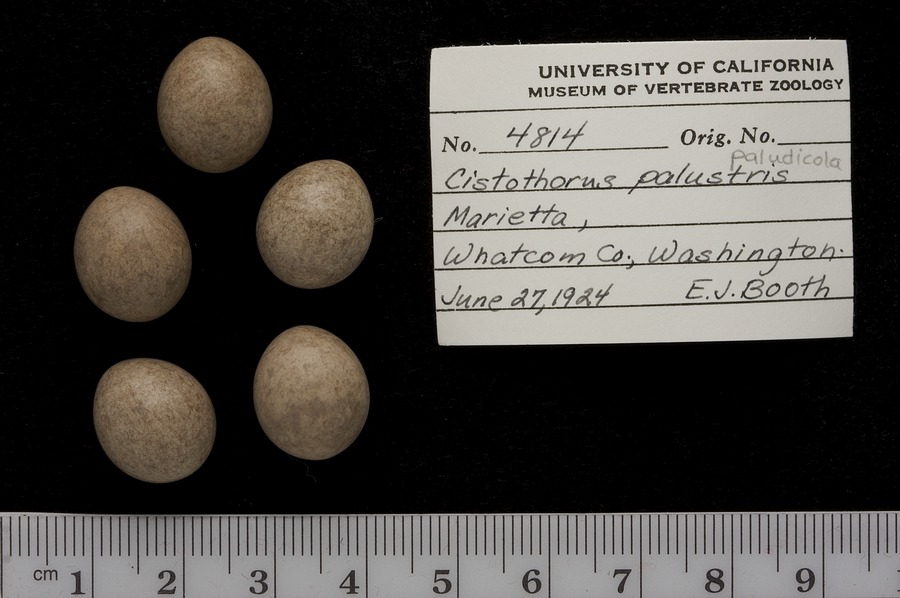 UNIVERSITY OF CALIFORNIA
MUSEUM OF VERTEBRATE ZOOLOGY
No. 4814 Orig. No.
paludicola
Cistothorus palustris
Marietta,
Whatcom Co., Washington.
June 27, 1924 E.J. Booth
cm 1 2 3 4 5 6 7 8 9